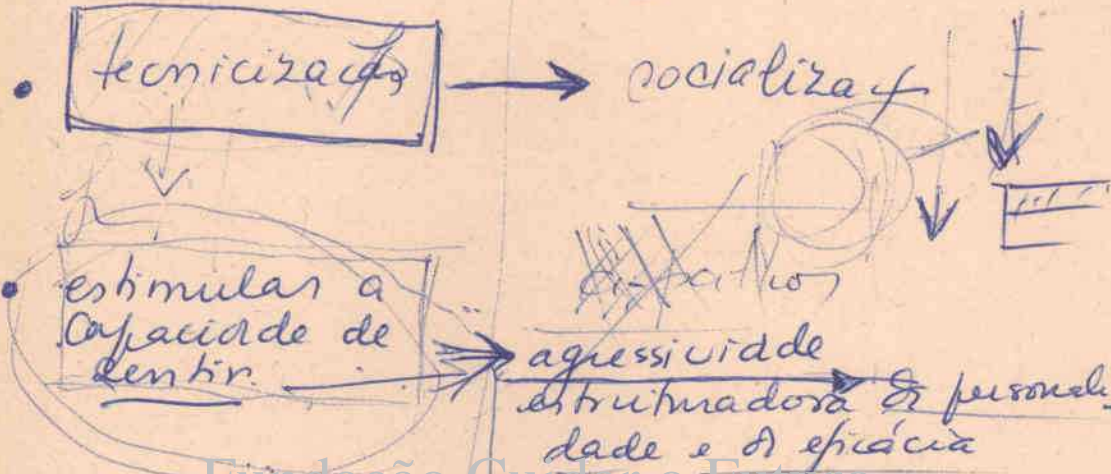 • tecnicização → socializaç
• estimular a
capacidde de
sentir
agressividde
estruturadora da personali
dade e da eficácia